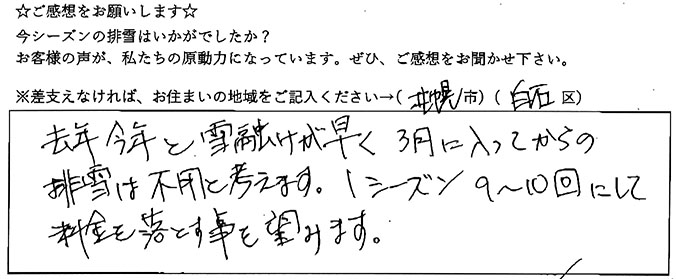 ☆ご感想をお願いします☆
今シーズンの排雪はいかがでしたか？
お客様の声が、私たちの原動力になっています。ぜひ、ご感想をお聞かせ下さい。
※差支えなければ、お住まいの地域をご記入ください→( 札幌 市) ( 白石 区)
去年今年と雪融けが早く 3月に入ってからの
排雪は不用と考えます。1シーズン 9～10回にして
料金を落とす事を望みます。